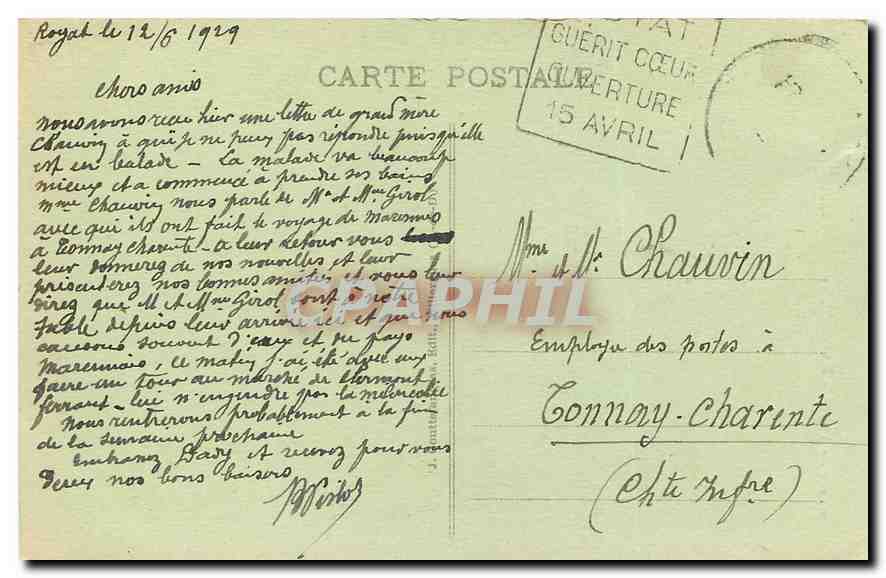 Royat le 12/6 1929
CARTE POSTALE
ROYAT
GUÉRIT CŒUR
OUVERTURE
15 AVRIL
Chers amis
Nous avons reçu hier une lettre de grand mère
Chauvin à qui je ne peux pas répondre puisqu'elle
est en balade - La malade va beaucoup
mieux et a commencé à prendre ses bains
Mme Chauvin nous parle de Mr et Mme Girol
avec qui ils ont fait le voyage de Marennes
à Tonnay Charente - a leur retour vous
leur donnerez de nos nouvelles et leur
présenterez nos bonnes amitiés et vous leur
direz que M et Mme Girol sont à notre
table depuis leur arrivée ici et que nous
causons souvent d'eux et du pays
Marennais, ce matin j'ai été avec eux
faire un tour au marché de Clermont
ferrant - lui n'engendre pas la
Nous rentrerons probablement à la fin
de la semaine prochaine
Embrassez Dady et recevez pour vous
deux nos bons baisers
Mme et Mr Chauvin
Employé des postes à
Tonnay-Charente
(Chte Infre)
CPAPHIL